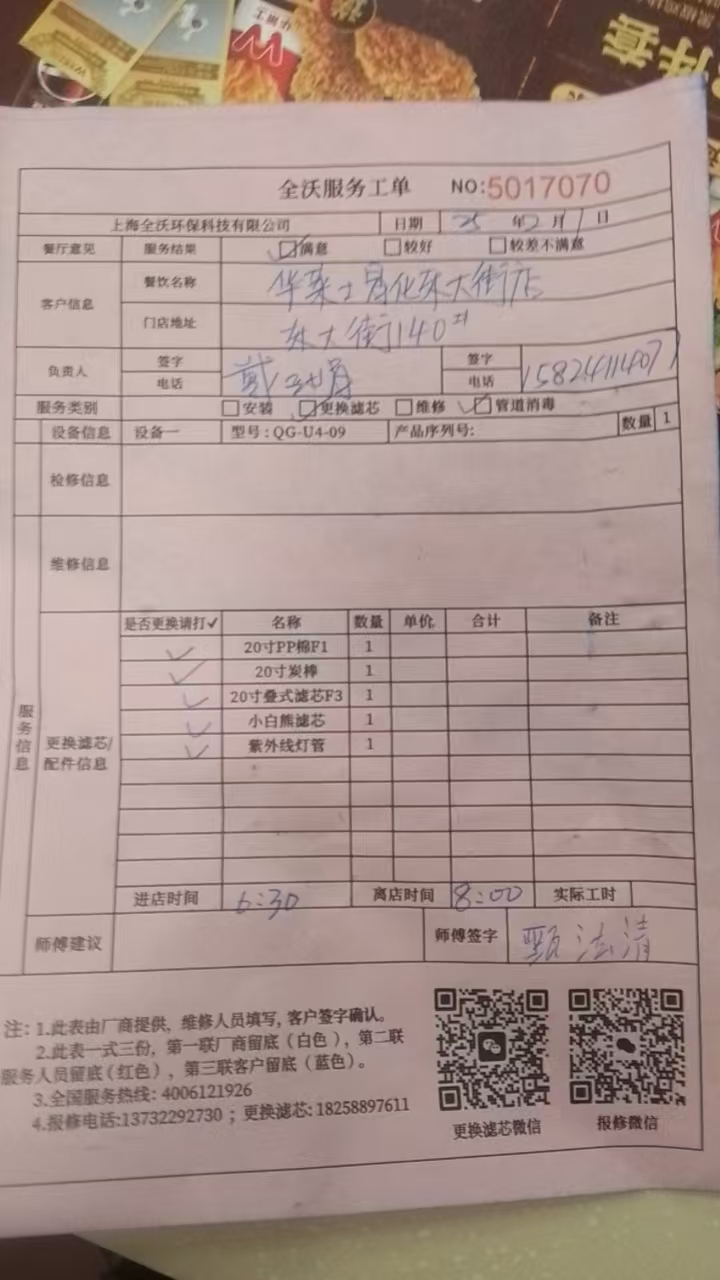 全沃服务工单 NO:5017070
上海全沃环保科技有限公司 日期 25 年2月1日
餐厅意见 服务结果 满意 较好 较差不满意
客户信息 餐饮名称 华莱士 东大街店
门店地址 东大街140号
负责人 签字 戴 签字
电话 电话 15824114071
服务类别 安装 更换滤芯 维修 管道消毒
设备信息 设备一 型号:QG-U4-09 产品序列号: 数量 1
检修信息
维修信息
服务信息
更换滤芯/配件信息
是否更换请打✓ 名称 数量 单价 合计 备注
✓ 20寸PP棉F1 1
✓ 20寸炭棒 1
✓ 20寸叠式滤芯F3 1
✓ 小白熊滤芯 1
✓ 紫外线灯管 1
进店时间 6:30 离店时间 8:00 实际工时
师傅建议 师傅签字 甄法清
注:1.此表由厂商提供,维修人员填写,客户签字确认。
2.此表一式三份,第一联厂商留底(白色),第二联
服务人员留底(红色),第三联客户留底(蓝色)。
3.全国服务热线:4006121926
4.报修电话:13732292730;更换滤芯:18258897611
更换滤芯微信 报修微信